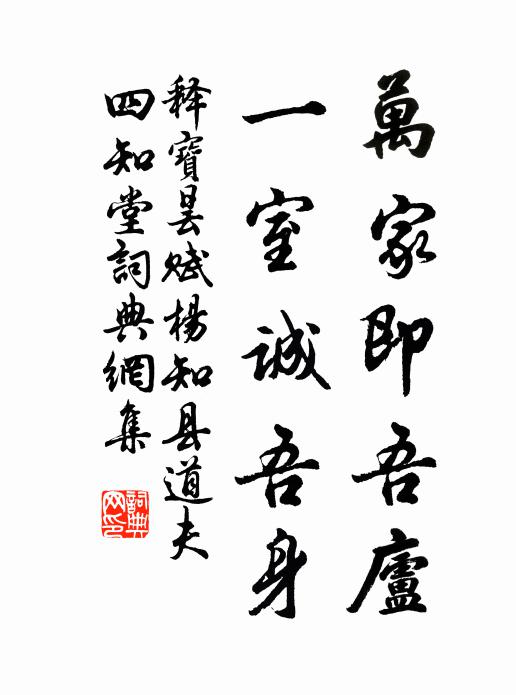 萬家即吾廬
一室誠吾身
释寶曇赋楊知县道夫
四知堂詞典網集
詞典网印